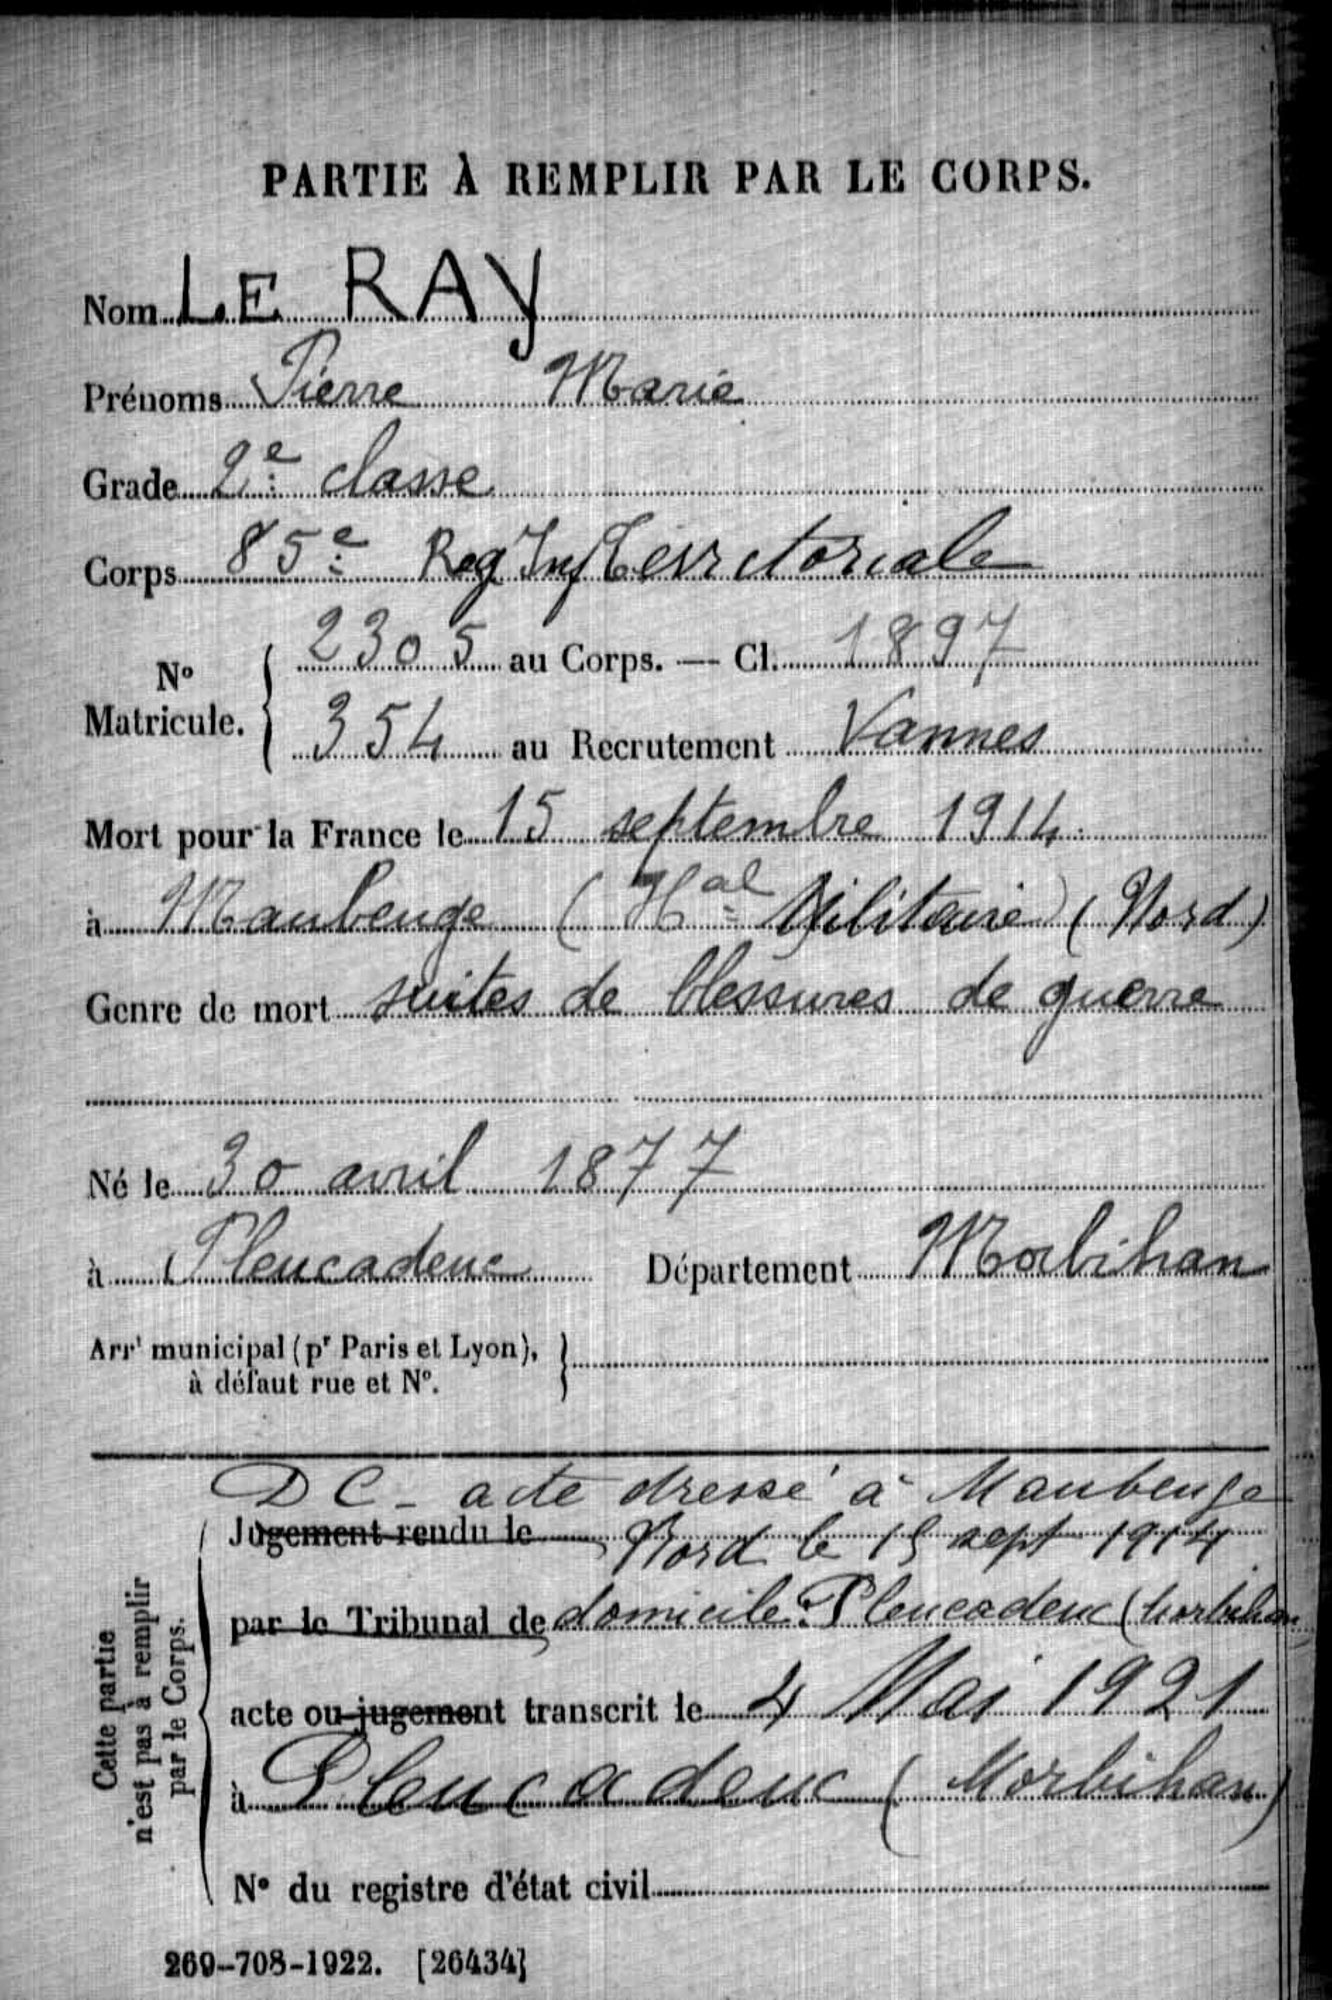 PARTIE À REMPLIR PAR LE CORPS.
Nom LE RAY
Prénoms Pierre Marie
Grade 2e classe
Corps 85e Reg Inf Territoriale
No Matricule. { 2305 au Corps. — Cl. 1897
354 au Recrutement Vannes
Mort pour la France le 15 septembre 1914
à Maubeuge (Hal Militaire) (Nord)
Genre de mort suites de blessures de guerre
Né le 30 avril 1877
à Pleucadeuc Département Morbihan
Arrt municipal (pr Paris et Lyon), }
à défaut rue et No.
DC - acte dressé à Maubeuge
Jugement rendu le Nord le 15 sept 1914
par le Tribunal de domicile : Pleucadeuc (Morbihan
acte ou jugement transcrit le 4 Mai 1921
à Pleucadeuc (Morbihan)
No du registre d'état civil
Cette partie
n'est pas à remplir
par le Corps.
269-708-1922. [26434]